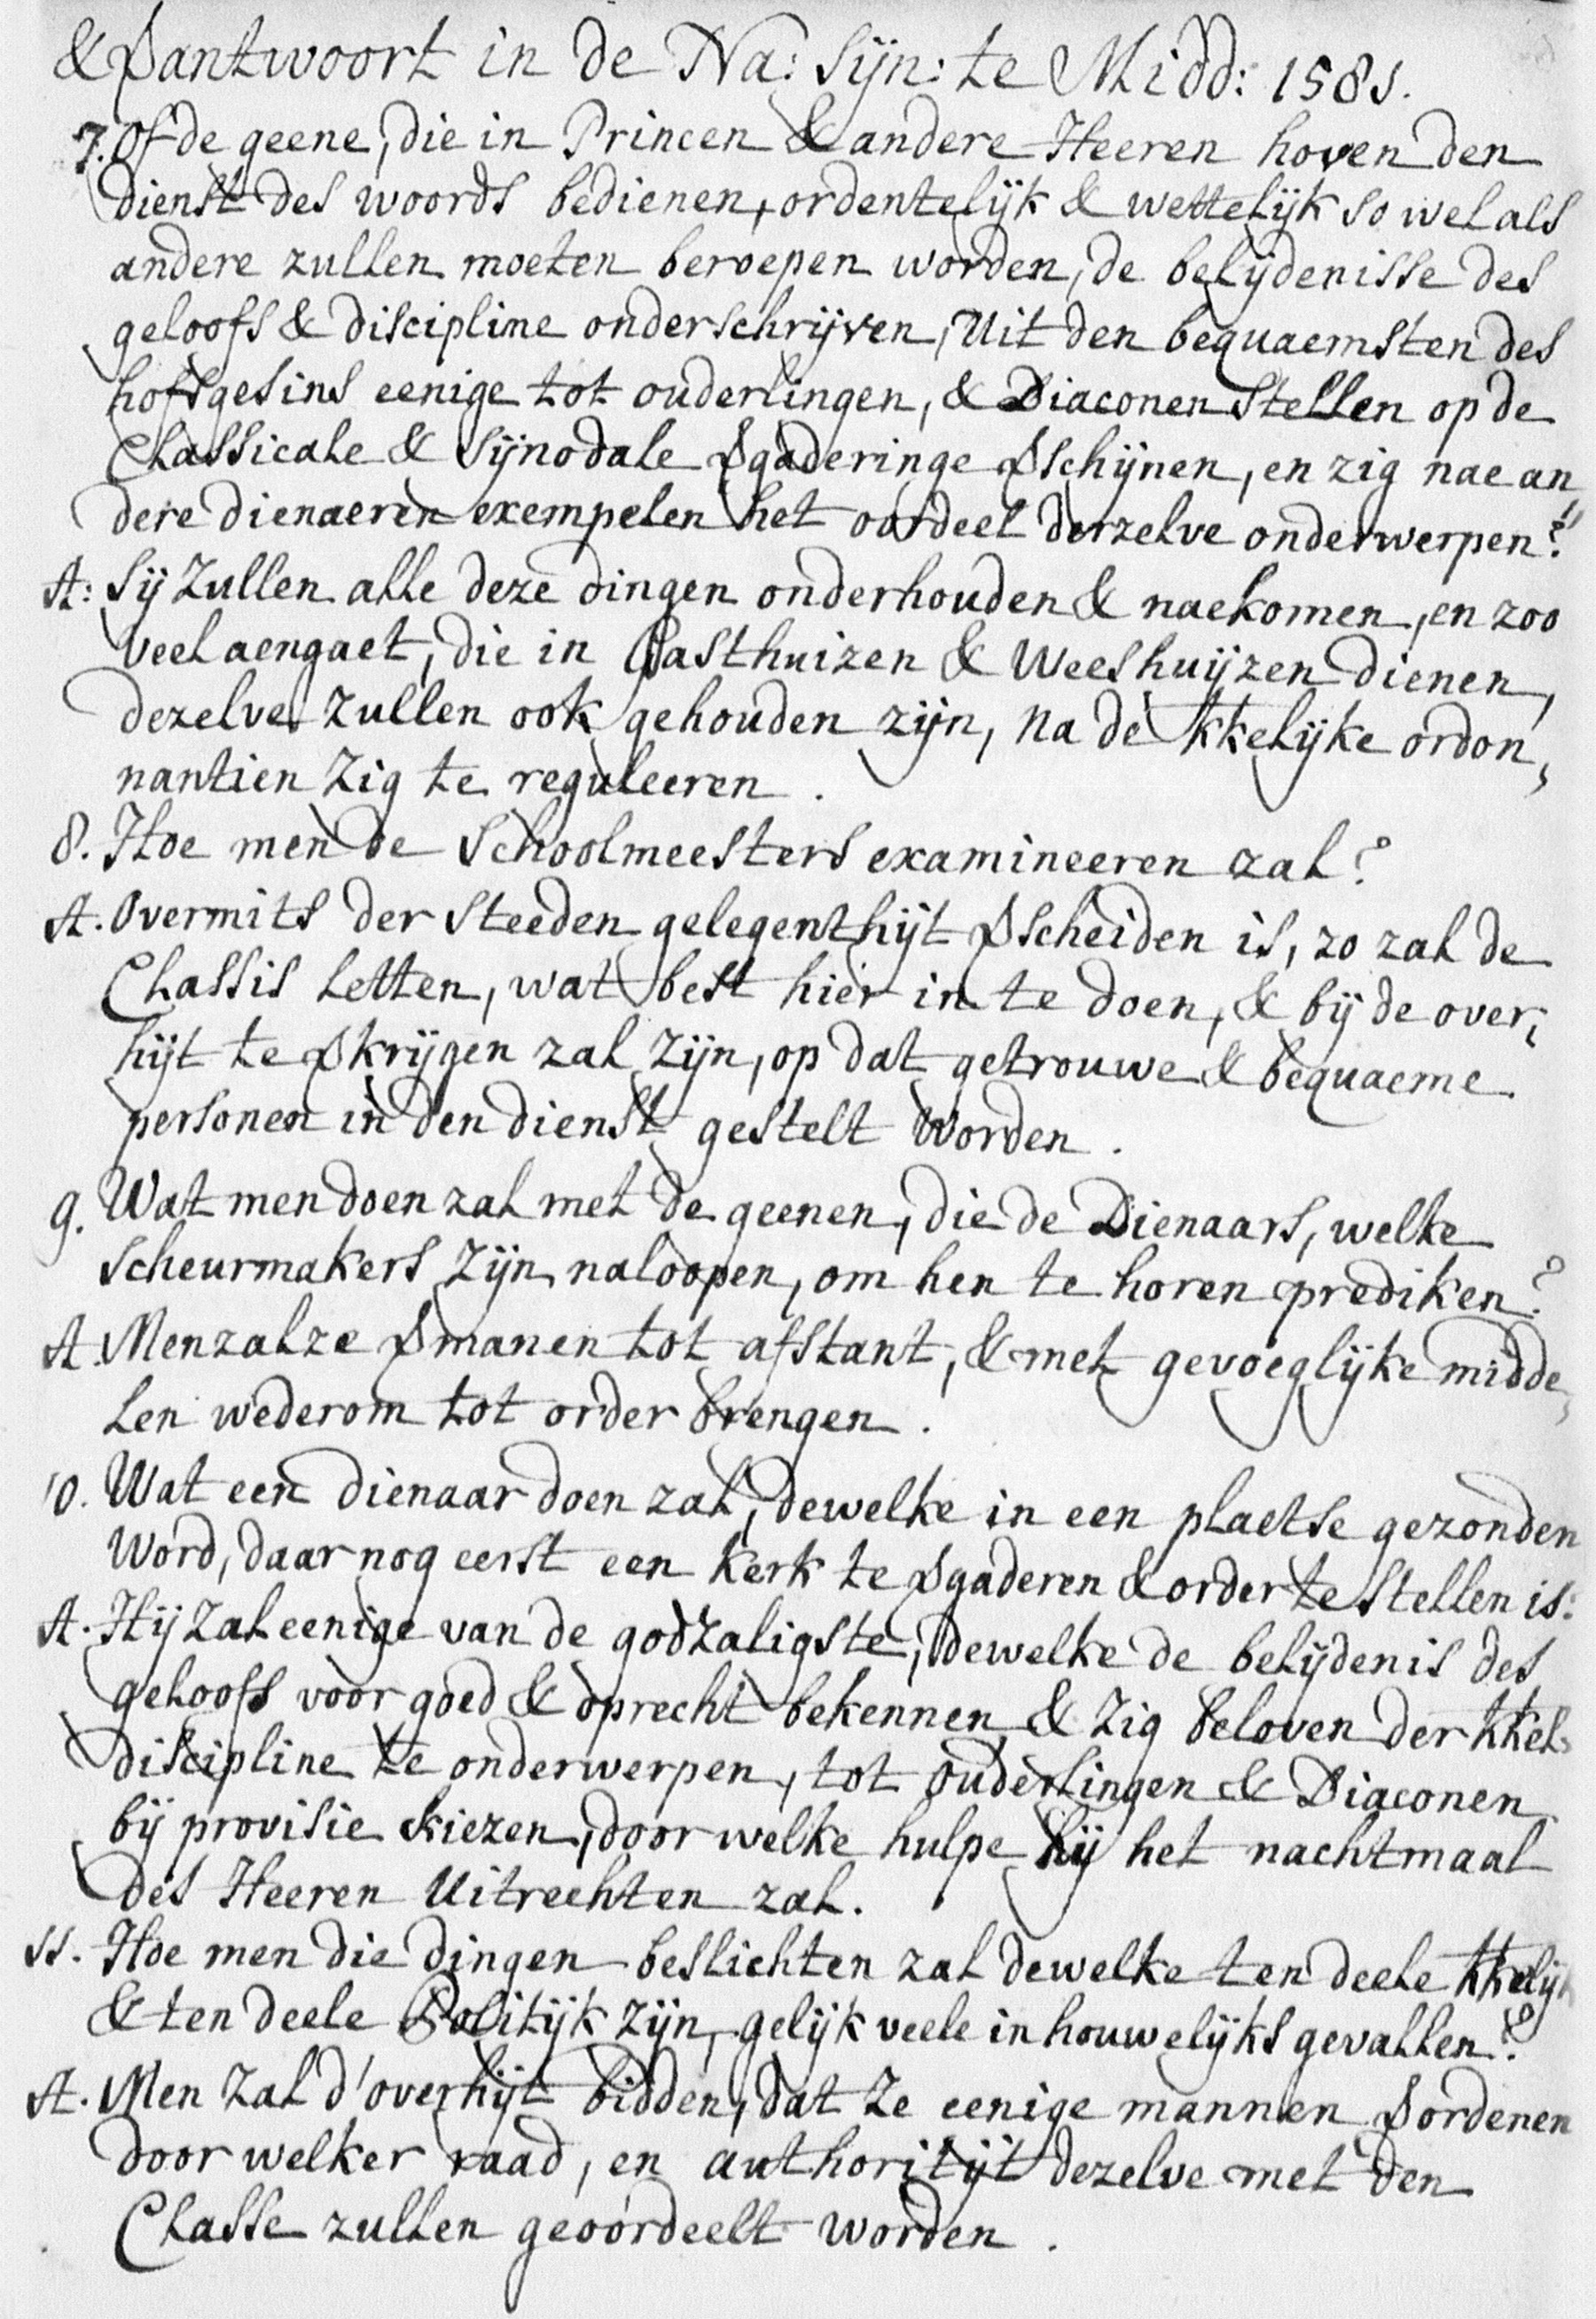 & Vantwoort in de Na: Sijn: te Midd: 1581.
7. Of de geene, die in Princen & andere Heeren hoven den
dienst des woords bedienen, ordentelijk & wettelijk so wel als
andere zullen moeten beroepen worden, de belijdenisse des
geloofs & discipline onderschrijven, Uit den bequaemsten des
hofsgesins eenige tot ouderlingen, & Diaconen stellen op de
Classicale & Sijnodale Vgaderinge Vschijnen, en zig nae an„
dere dienaeren exempelen het oordeel derzelve onderwerpen?
A: Sij Zullen alle deze dingen onderhouden & naekomen, en zoo
veel aengaet, die in Gasthuizen & Weeshuijzen dienen,
dezelve zullen ook gehouden zijn, na de kkelijke ordon,
nantien Zig te reguleeren.
8. Hoe men de Schoolmeesters examineeren zal?
A. Overmits der Steeden gelegenthijt Vscheiden is, zo zal de
Classis letten, wat best hier in te doen, & bij de over,
hijt te Vkrijgen zal Zijn, op dat getrouwe & bequaeme
personen in den dienst gestelt Worden.
9. Wat men doen zal met de geenen, die de Dienaars, welke
Scheurmakers Zijn naloopen, om hen te horen prediken?
A. Men zal ze Vmanen tot afstant, & met gevoeglijke midde,
len wederom tot order brengen.
10. Wat een dienaar doen zal, dewelke in een plaetse gezonden
Word, daar nog eerst een kerk te Vgaderen & order te stellen is:
A. Hij Zal eenige van de godzaligste, dewelke de belijdenis des
geloofs voor goed & oprecht bekennen & Zig beloven der kkel:
discipline te onderwerpen, tot ouderlingen & Diaconen
bij provisie kiezen, door welke hulpe hij het nachtmaal
des Heeren Uitrechten zal.
11. Hoe men die dingen beslichten zal dewelke ten deele kkelijk
& ten deele Politijk Zijn, gelijk veele in houwelijks gevallen?
A. Men Zal d'overhijt bidden, dat Ze eenige mannen Vordenen
door welker raad, en authoritijt dezelve met den
Classe zullen geoordeelt worden.